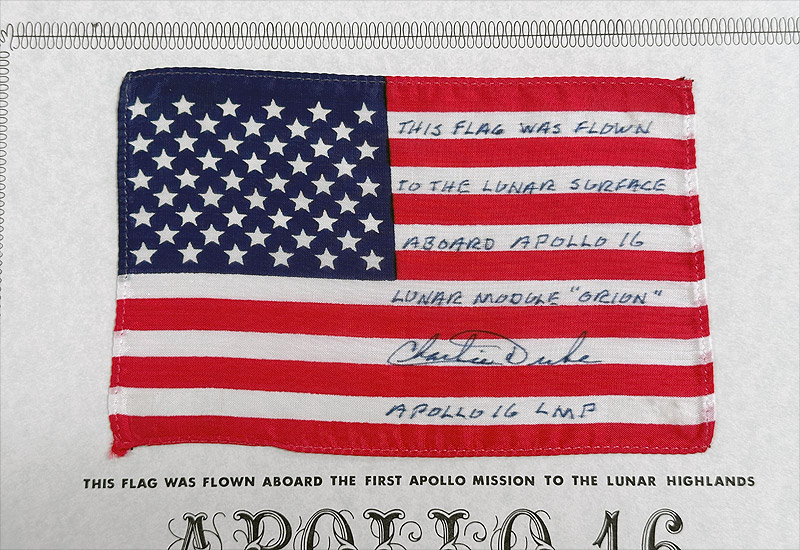 THIS FLAG WAS FLOWN
TO THE LUNAR SURFACE
ABOARD APOLLO 16
LUNAR MODULE "ORION"
Charlie Duke
APOLLO 16 LMP
THIS FLAG WAS FLOWN ABOARD THE FIRST APOLLO MISSION TO THE LUNAR HIGHLANDS
APOLLO 16